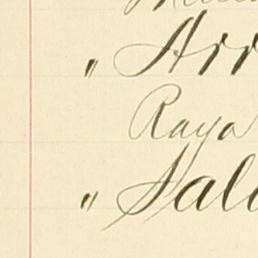 " Arr
Raya
" Sal